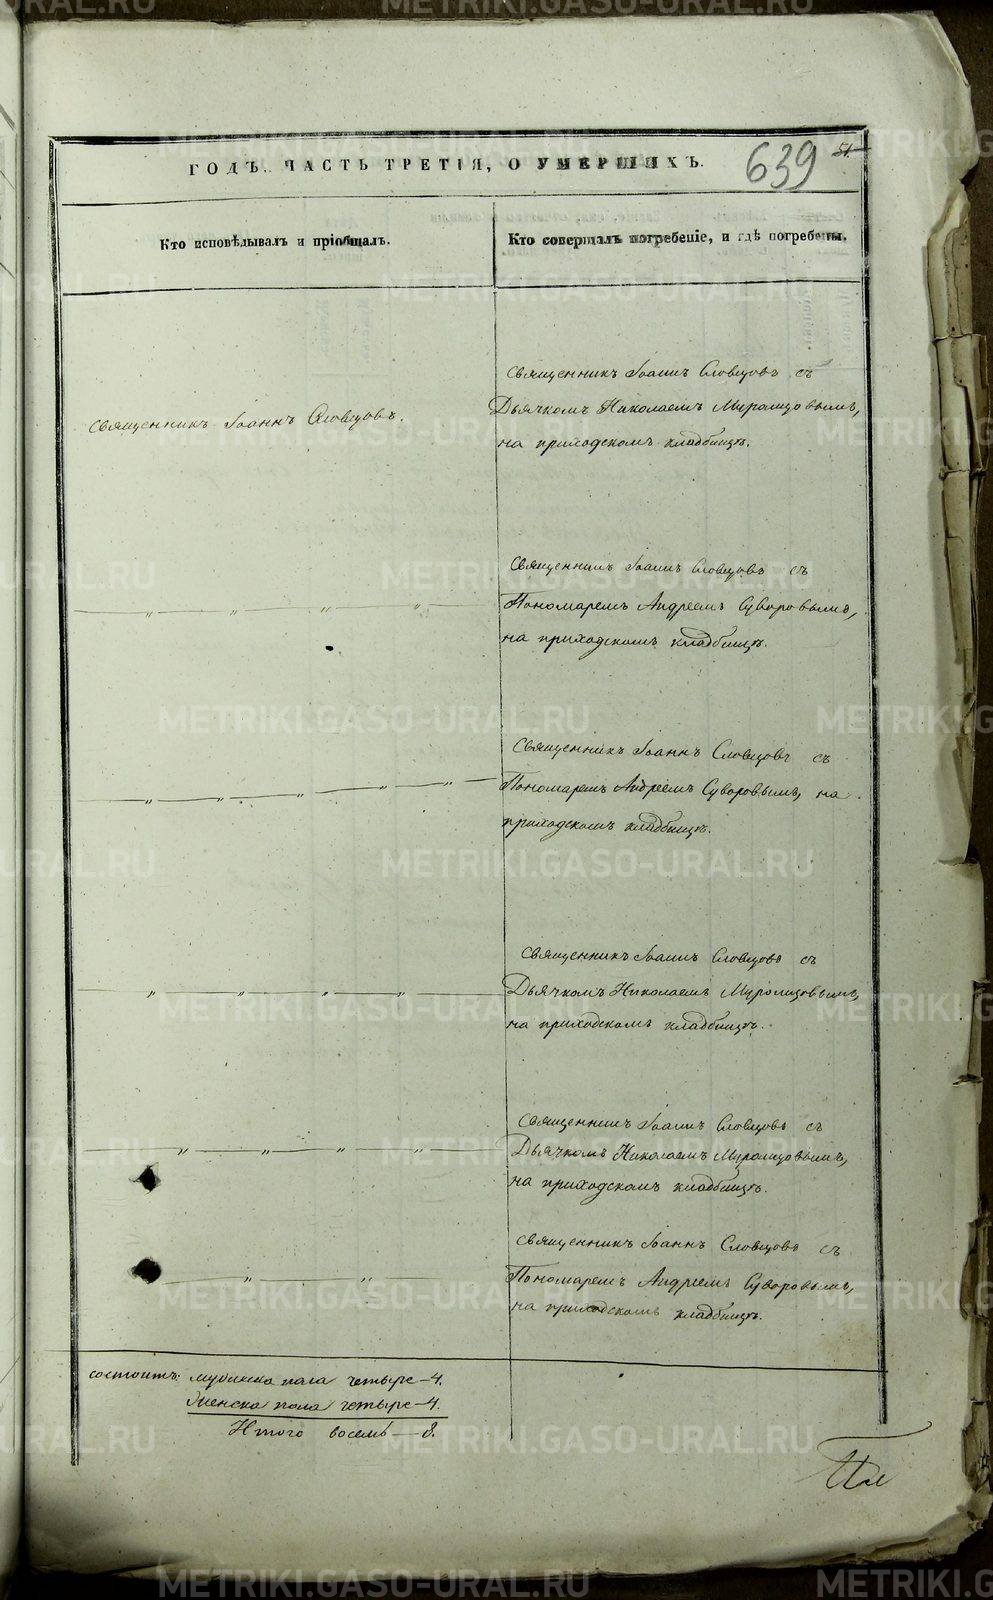 ГОДЪ. ЧАСТЬ ТРЕТІЯ, О УМЕРШИХЪ.
639
51.
Кто исповѣдывалъ и пріобщалъ.
Кто совершалъ погребеніе, и гдѣ погребены.
Священникъ Іоаннъ Словцовъ.
Священникъ Іоаннъ Словцовъ съ
Дьячкомъ Николаемъ Муромцовымъ,
на приходскомъ кладбищѣ.
— „ — „ — „ — „ —
Священникъ Іоаннъ Словцовъ съ
Пономаремъ Андреемъ Суворовымъ,
на приходскомъ кладбищѣ.
— „ — „ — „ — „ — „ —
Священникъ Іоаннъ Словцовъ съ
Пономаремъ Андреемъ Суворовымъ, на
приходскомъ кладбищѣ.
— „ — „ — „ — „ —
Священникъ Іоаннъ Словцовъ съ
Дьячкомъ Николаемъ Муромцовымъ,
на приходскомъ кладбищѣ.
— „ — „ — „ — „ —
Священникъ Іоаннъ Словцовъ съ
Дьячкомъ Николаемъ Муромцовымъ,
на приходскомъ кладбищѣ.
— „ — „ —
Священникъ Іоаннъ Словцовъ съ
Пономаремъ Андреемъ Суворовымъ,
на приходскомъ кладбищѣ.
состоитъ: мужеска пола четыре—4.
Женска пола четыре—4.
Итого восемь—8.
METRIKI.GASO-URAL.RU